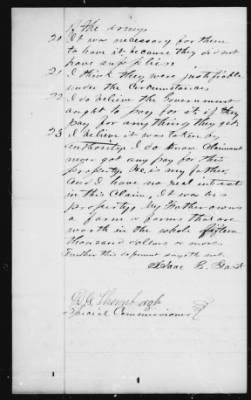 the army
20 It was necessary for them
to have it, because they did not
have supplies
21 I think they were justifiable
under the Circumstances
22 I do believe the Government
ought to pay for it if they
pay for anything they got.
23 I believe it was taken by
authority. I do know Claimant
never got any pay for this
property. He, is my father,
and I have no interest
in this Claim, It was his
property, My Father owns
a farm or farms that are
worth in the whole fifteen
thousand dollars or more.
Further this deponent sayeth not.
Isaac
Special Commissioner